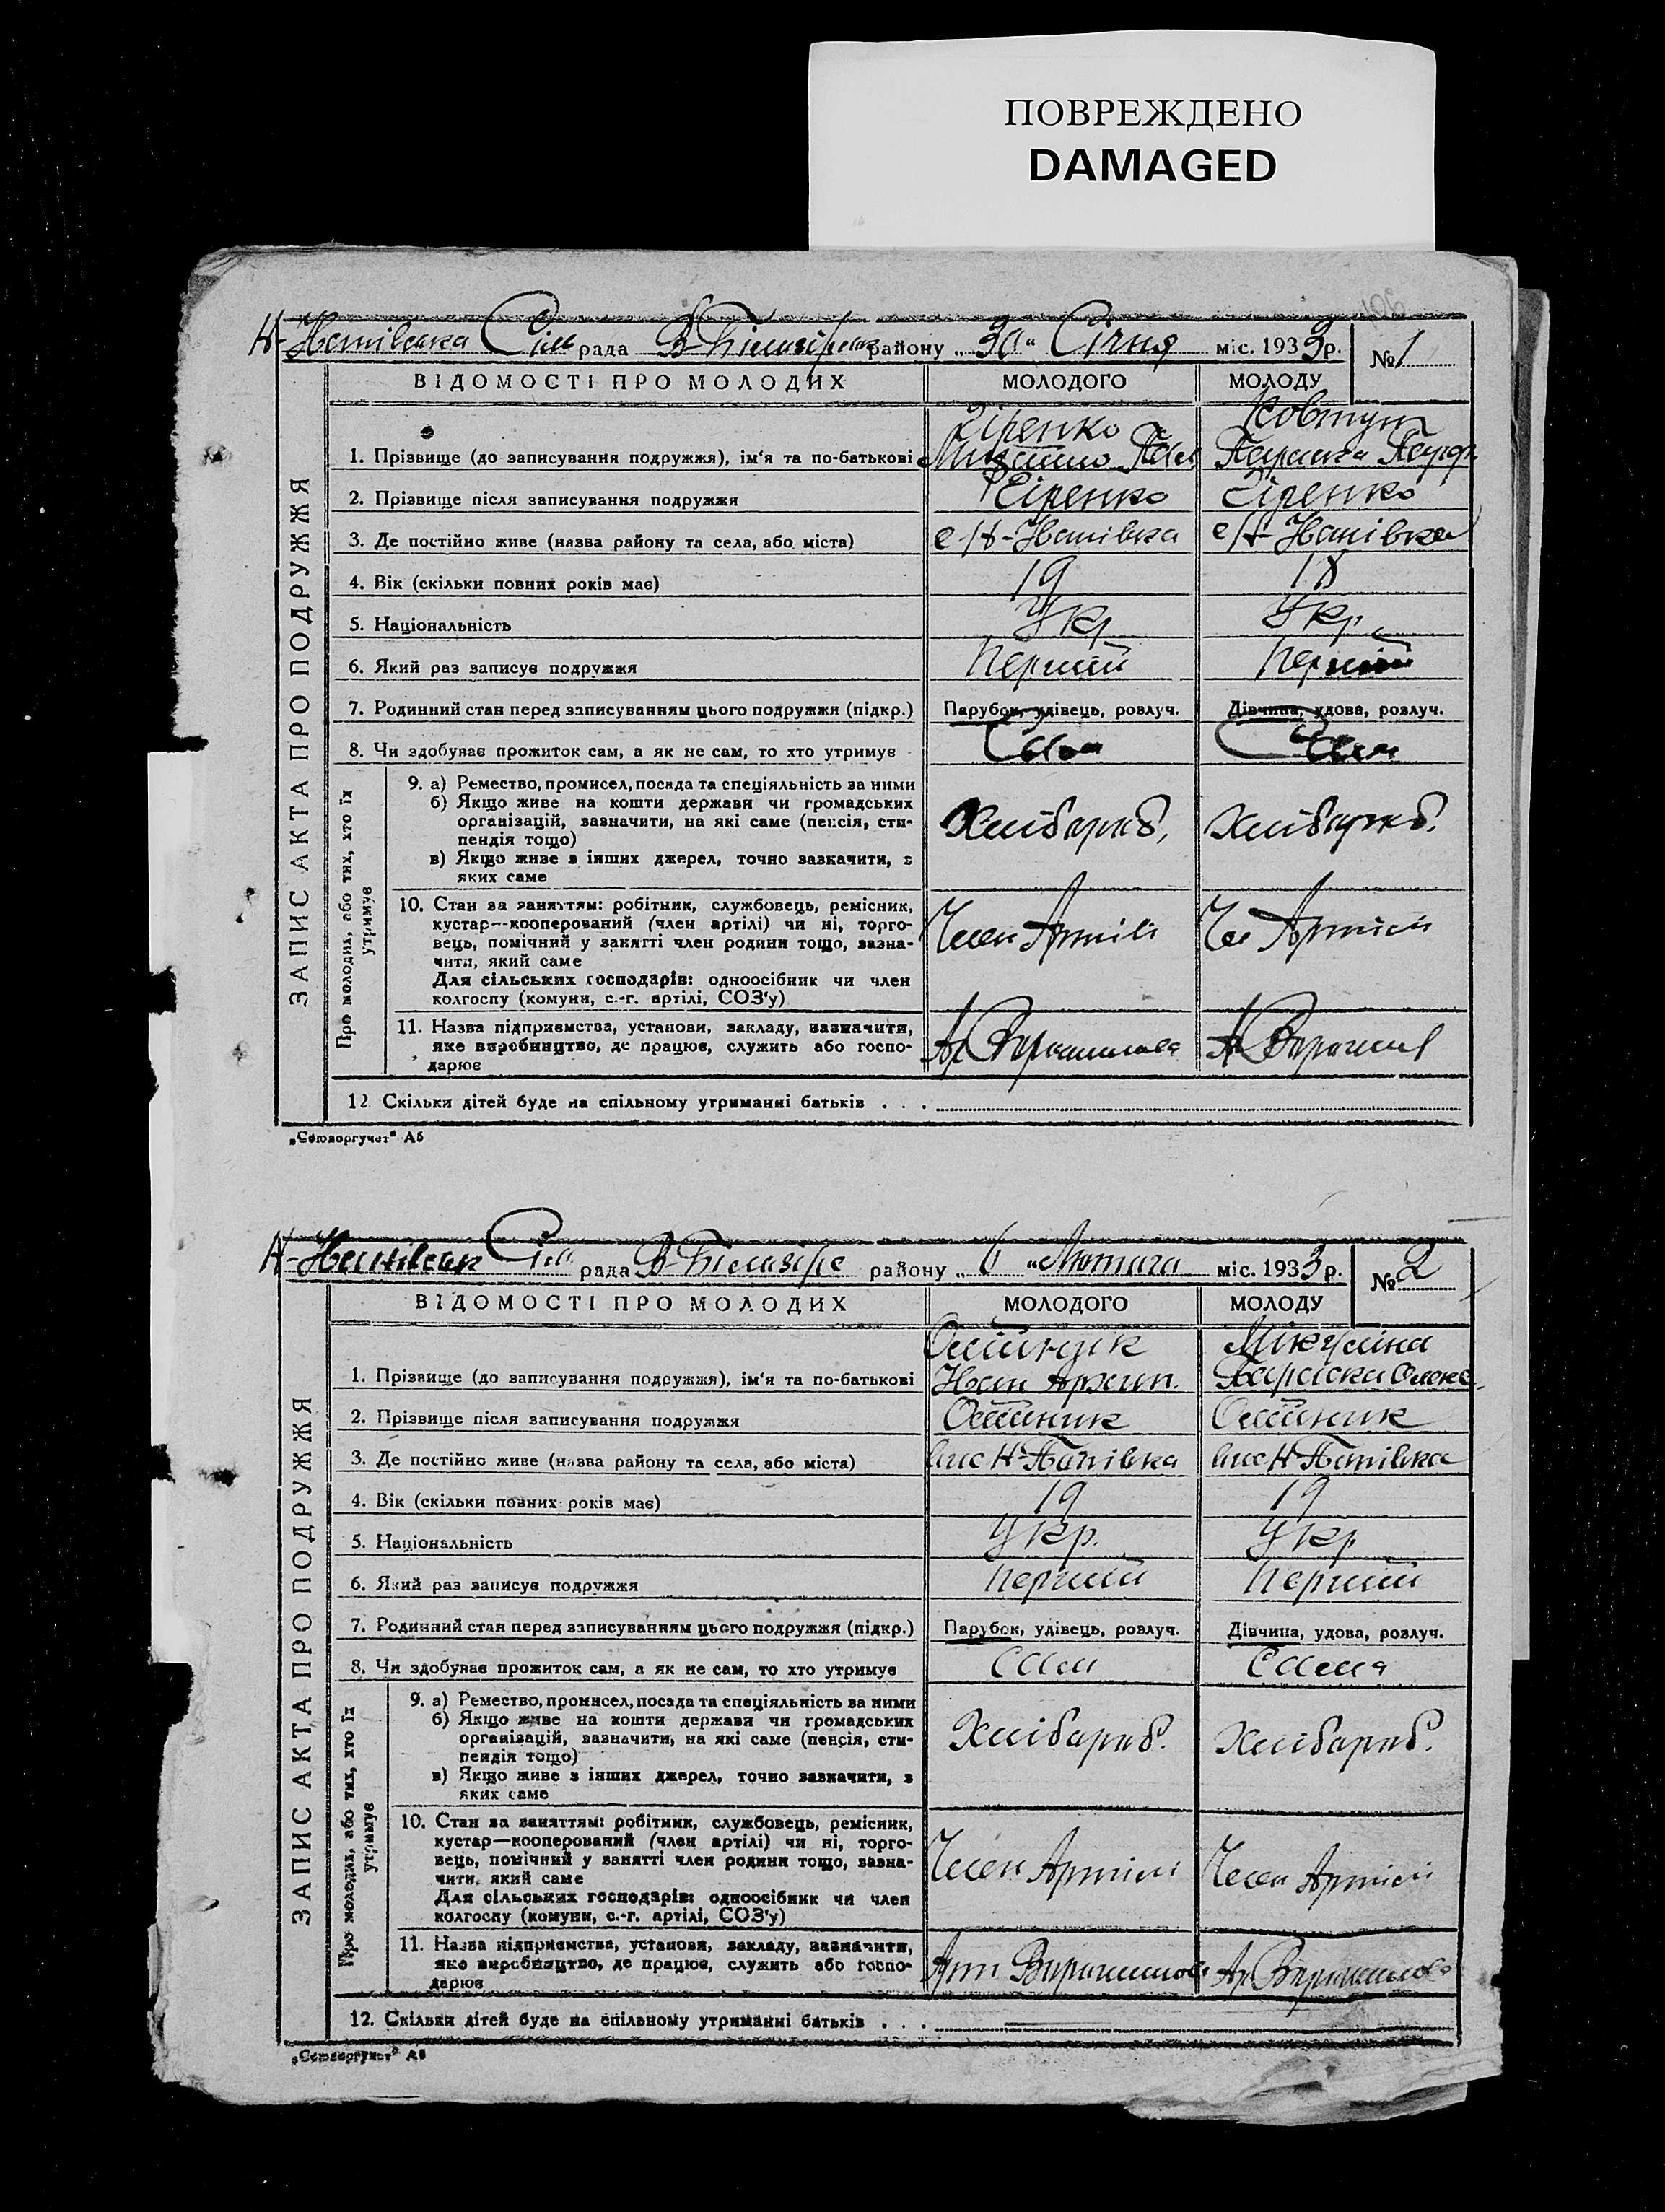 ПОВРЕЖДЕНО
DAMAGED
рада району „30“ Січня міс. 1933 р. №1
ВІДОМОСТІ ПРО МОЛОДИХ МОЛОДОГО МОЛОДУ
ЗАПИС АКТА ПРО ПОДРУЖЖЯ
Ковтун
1. Прізвище (до записування подружжя), ім'я та по-батькові
2. Прізвище після записування подружжя Сіренко Сіренко
3. Де постійно живе (назва району та села, або міста)
4. Вік (скільки повних років має) 19 18
5. Національність Укр Укр.
6. Який раз записує подружжя Перший Перший
7. Родинний стан перед записуванням цього подружжя (підкр.) Парубок, удівець, розлуч. Дівчина, удова, розлуч.
8. Чи здобуває прожиток сам, а як не сам, то хто утримує Сам Сам
Про молодих, або тих, хто їх утримує
9. а) Ремество, промисел, посада та спеціяльність за ними
б) Якщо живе на кошти держави чи громадських
організацій, зазначити, на які саме (пенсія, сти-
пендія тощо)
Хлібороб, Хлібороб.
в) Якщо живе з інших джерел, точно зазначити, з
яких саме
10. Стан за заняттям: робітник, службовець, ремісник,
кустар—кооперований (член артілі) чи ні, торго-
вець, помічний у занятті член родини тощо, зазна-
чити, який саме
Член Артілі Чл Артілі
Для сільських господарів: одноосібник чи член
колгоспу (комуни, с.-г. артілі, СОЗ'у)
11. Назва підприємства, установи, закладу, зазначити,
яке виробництво, де працює, служить або госпо-
дарює
12. Скільки дітей буде на спільному утриманні батьків . . .
„Союзоргучет“ А5
рада району „6“ Лютого міс. 1933 р. №2
ВІДОМОСТІ ПРО МОЛОДИХ МОЛОДОГО МОЛОДУ
ЗАПИС АКТА ПРО ПОДРУЖЖЯ
Олійник Мікуліна
1. Прізвище (до записування подружжя), ім'я та по-батькові Іван Архип. Параска Олекс.
2. Прізвище після записування подружжя Олійник Олійник
3. Де постійно живе (назва району та села, або міста)
4. Вік (скільки повних років має) 19 19
5. Національність Укр. Укр
6. Який раз записує подружжя Перший Перший
7. Родинний стан перед записуванням цього подружжя (підкр.) Парубок, удівець, розлуч. Дівчина, удова, розлуч.
8. Чи здобуває прожиток сам, а як не сам, то хто утримує Сам Сама
Про молодих, або тих, хто їх утримує
9. а) Ремество, промисел, посада та спеціяльність за ними
б) Якщо живе на кошти держави чи громадських
організацій, зазначити, на які саме (пенсія, сти-
пендія тощо)
Хлібороб. Хлібороб.
в) Якщо живе з інших джерел, точно зазначити, з
яких саме
10. Стан за заняттям: робітник, службовець, ремісник,
кустар—кооперований (член артілі) чи ні, торго-
вець, помічний у занятті член родини тощо, зазна-
чити, який саме
Член Артілі Член Артілі
Для сільських господарів: одноосібник чи член
колгоспу (комуни, с.-г. артілі, СОЗ'у)
11. Назва підприємства, установи, закладу, зазначити,
яке виробництво, де працює, служить або госпо-
дарює
12. Скільки дітей буде на спільному утриманні батьків . . .
„Союзоргучет“ А5